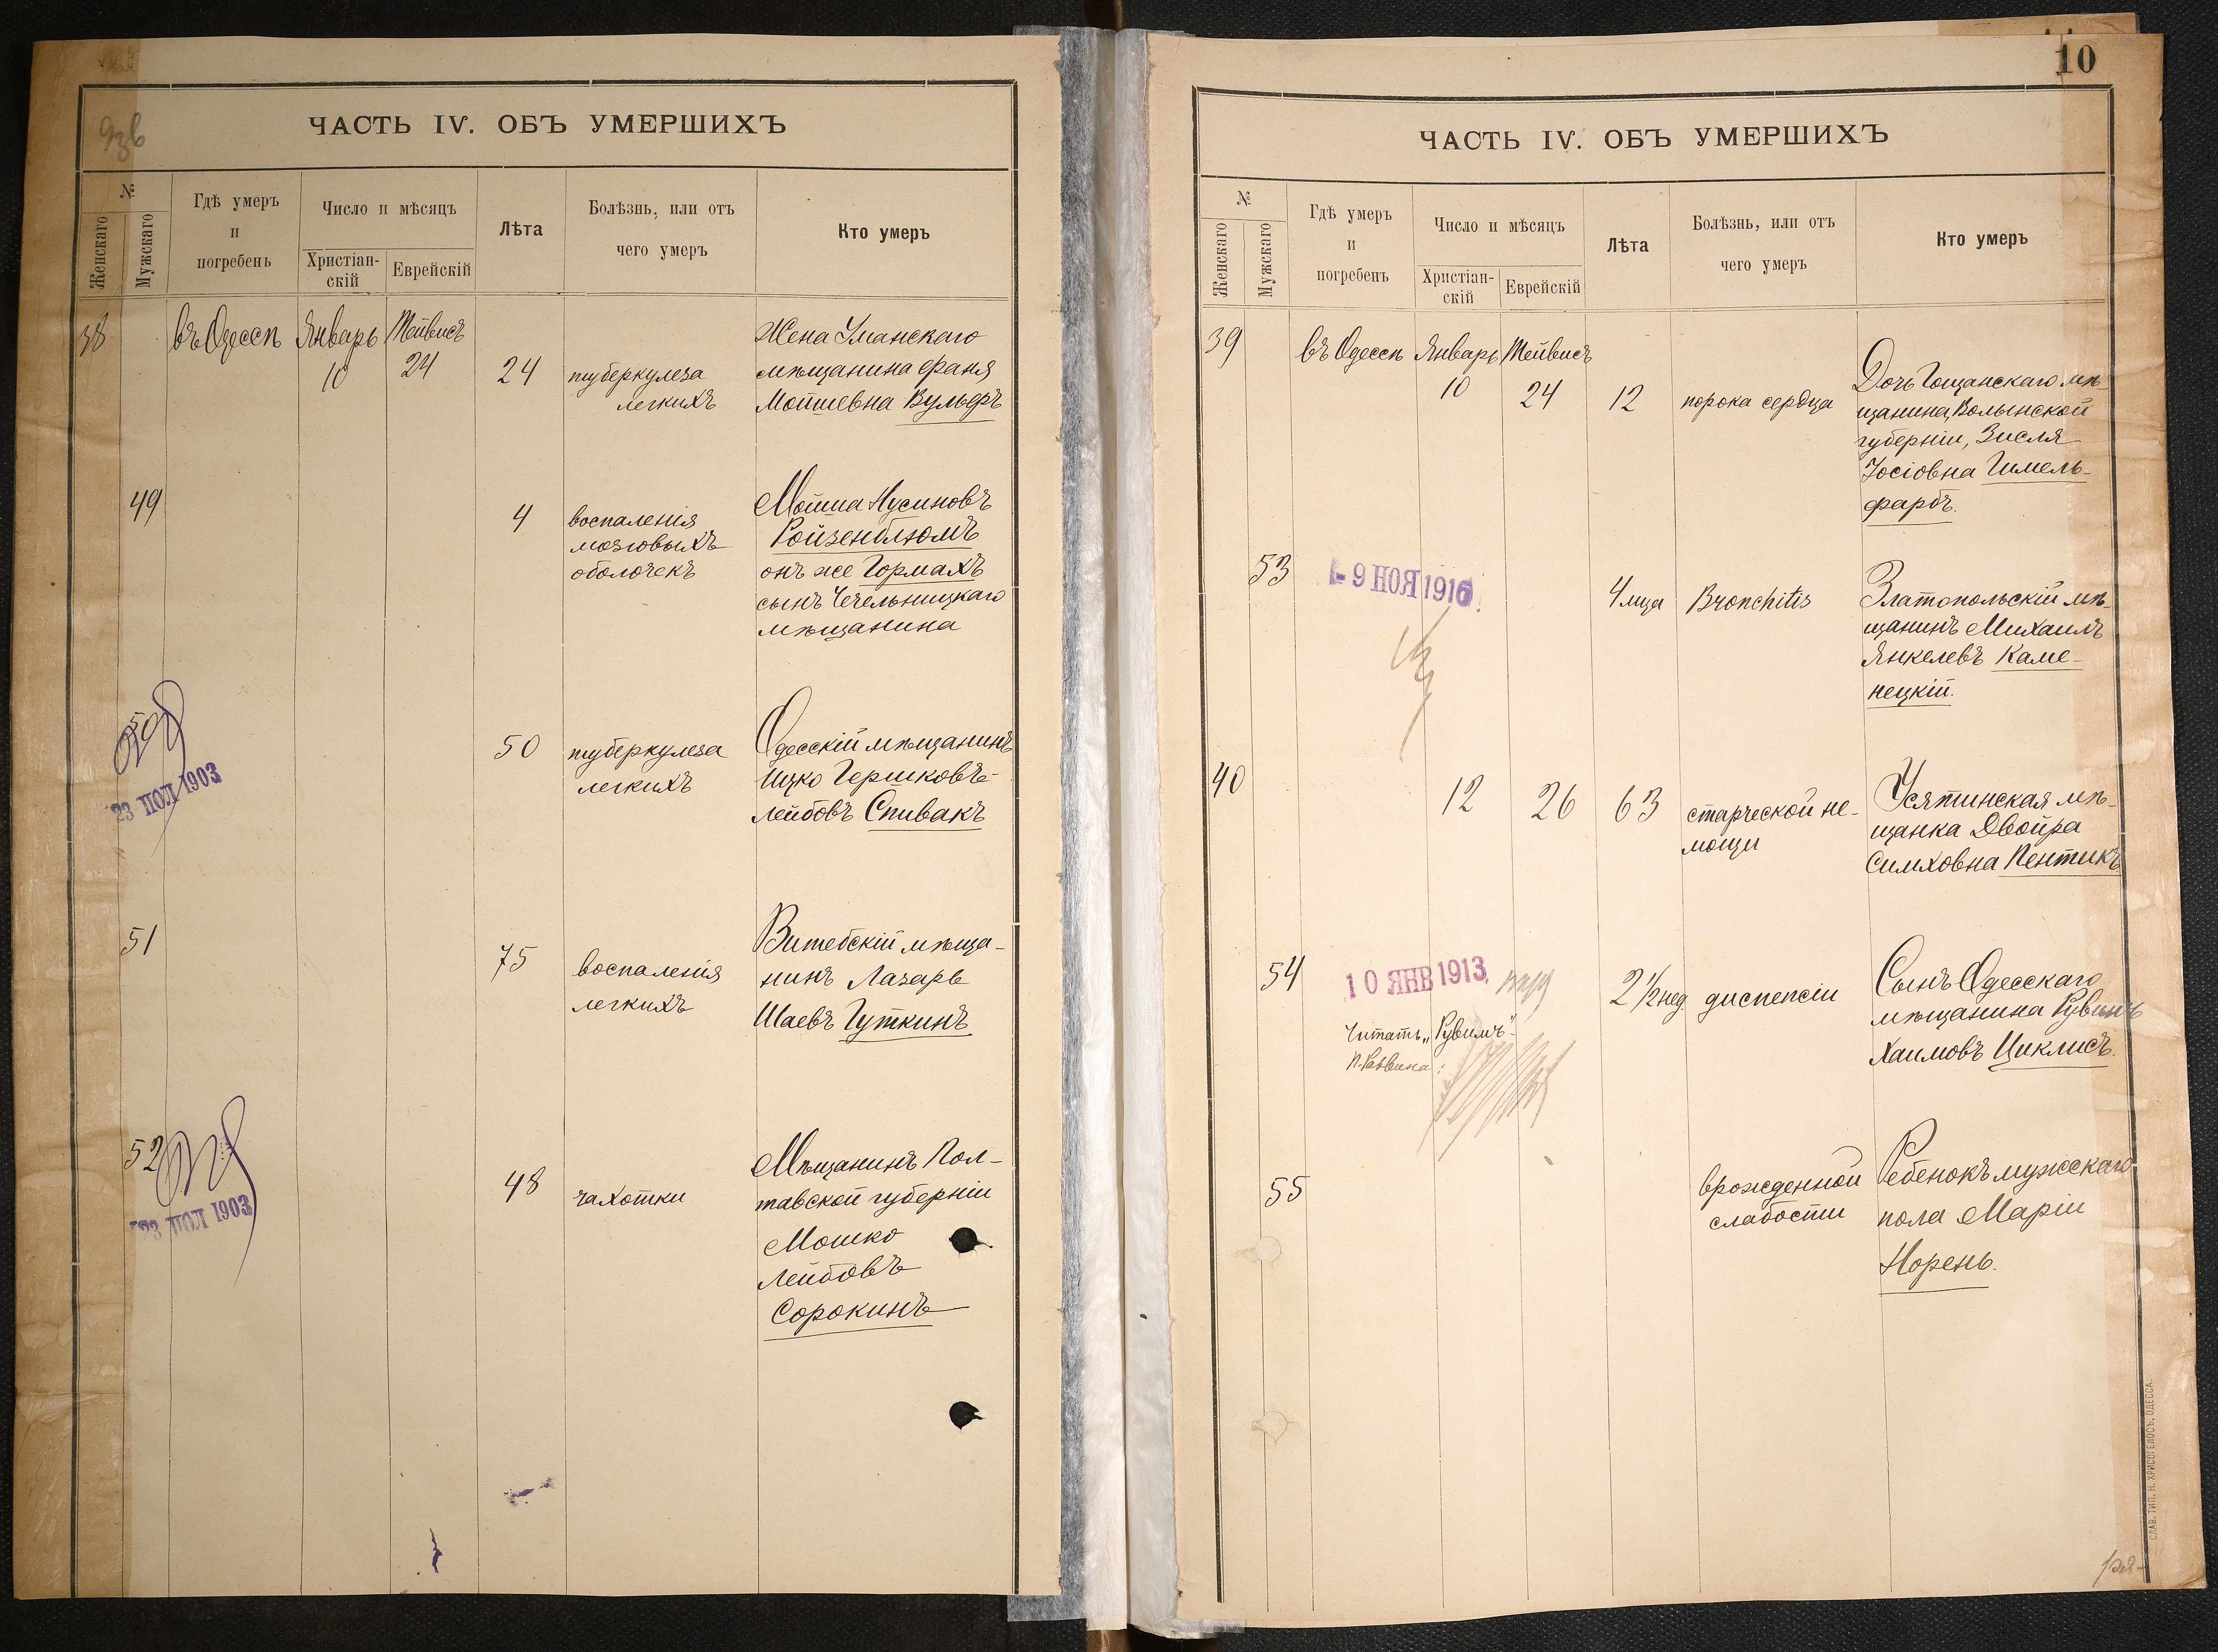 ЧАСТЬ IV. ОБЪ УМЕРШИХЪ
№
Женскаго
Мужскаго
Гдѣ умеръ
и
погребенъ
Число и мѣсяцъ
Христіан-
скій
Еврейскій
Лѣта
Болѣзнь, или отъ
чего умеръ
Кто умеръ
38 въ Одессѣ Январь Тейвисъ
10 24 24 туберкулеза
легкихъ
Жена Уманскаго
мѣщанина Фаня
Мошіевна Вульфъ
49 4 воспаленія
мозговыхъ
оболочекъ
Мойша Нусиновъ
Ройзенблюмъ
онъ же Гормахъ
сынъ Чечельницкаго
мѣщанина
50
23 ІЮЛ 1903
50 туберкулеза
легкихъ
Одесскій мѣщанинъ
Ицко Гершковъ-
Лейбовъ Спивакъ
51 75 воспаленія
легкихъ
Витебскій мѣща-
нинъ Лазарь
Шаевъ Гуткинъ
52
23 ІЮЛ 1903
48 чахотки
Мѣщанинъ Пол-
тавской губерніи
Мошко
Лейбовъ
Сорокинъ
10
ЧАСТЬ IV. ОБЪ УМЕРШИХЪ
№
Женскаго
Мужскаго
Гдѣ умеръ
и
погребенъ
Число и мѣсяцъ
Христіан-
скій
Еврейскій
Лѣта
Болѣзнь, или отъ
чего умеръ
Кто умеръ
39 въ Одессѣ Январь Тейвисъ
10 24 12 порока сердца
Дочь Гощанскаго мѣ-
щанина, Волынской
губерніи, Зисля
Іосіовна Гимель-
фарбъ.
53
9 НОЯ 1916
4 мца Bronchitis
Златопольскій мѣ-
щанинъ Михаилъ
Янкелевъ Каме-
нецкій.
40 12 26 63 старческой не-
мощи
Усятинская мѣ-
щанка Двойра
Симховна Пентикъ
54
10 ЯНВ 1913
Читать „Рувимъ"
2 1/2 нед. диспепсіи
Сынъ Одесскаго
мѣщанина Рувинъ
Хаимовъ Циклисъ.
55 врожденной
слабости
Ребенокъ мужскаго
пола Маріи
Норень.
СЛАВ. ТИП. Н. ХРИСОГЕЛОСЪ, ОДЕССА.